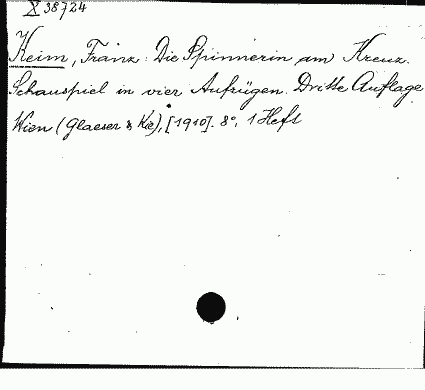 X 38724
Keim, Franz: Die Spinnerin am Kreuz.
Schauspiel in vier Aufzügen. Dritte Auflage
Wien (Glaeser & Kie), [1910]. 8°, 1 Heft